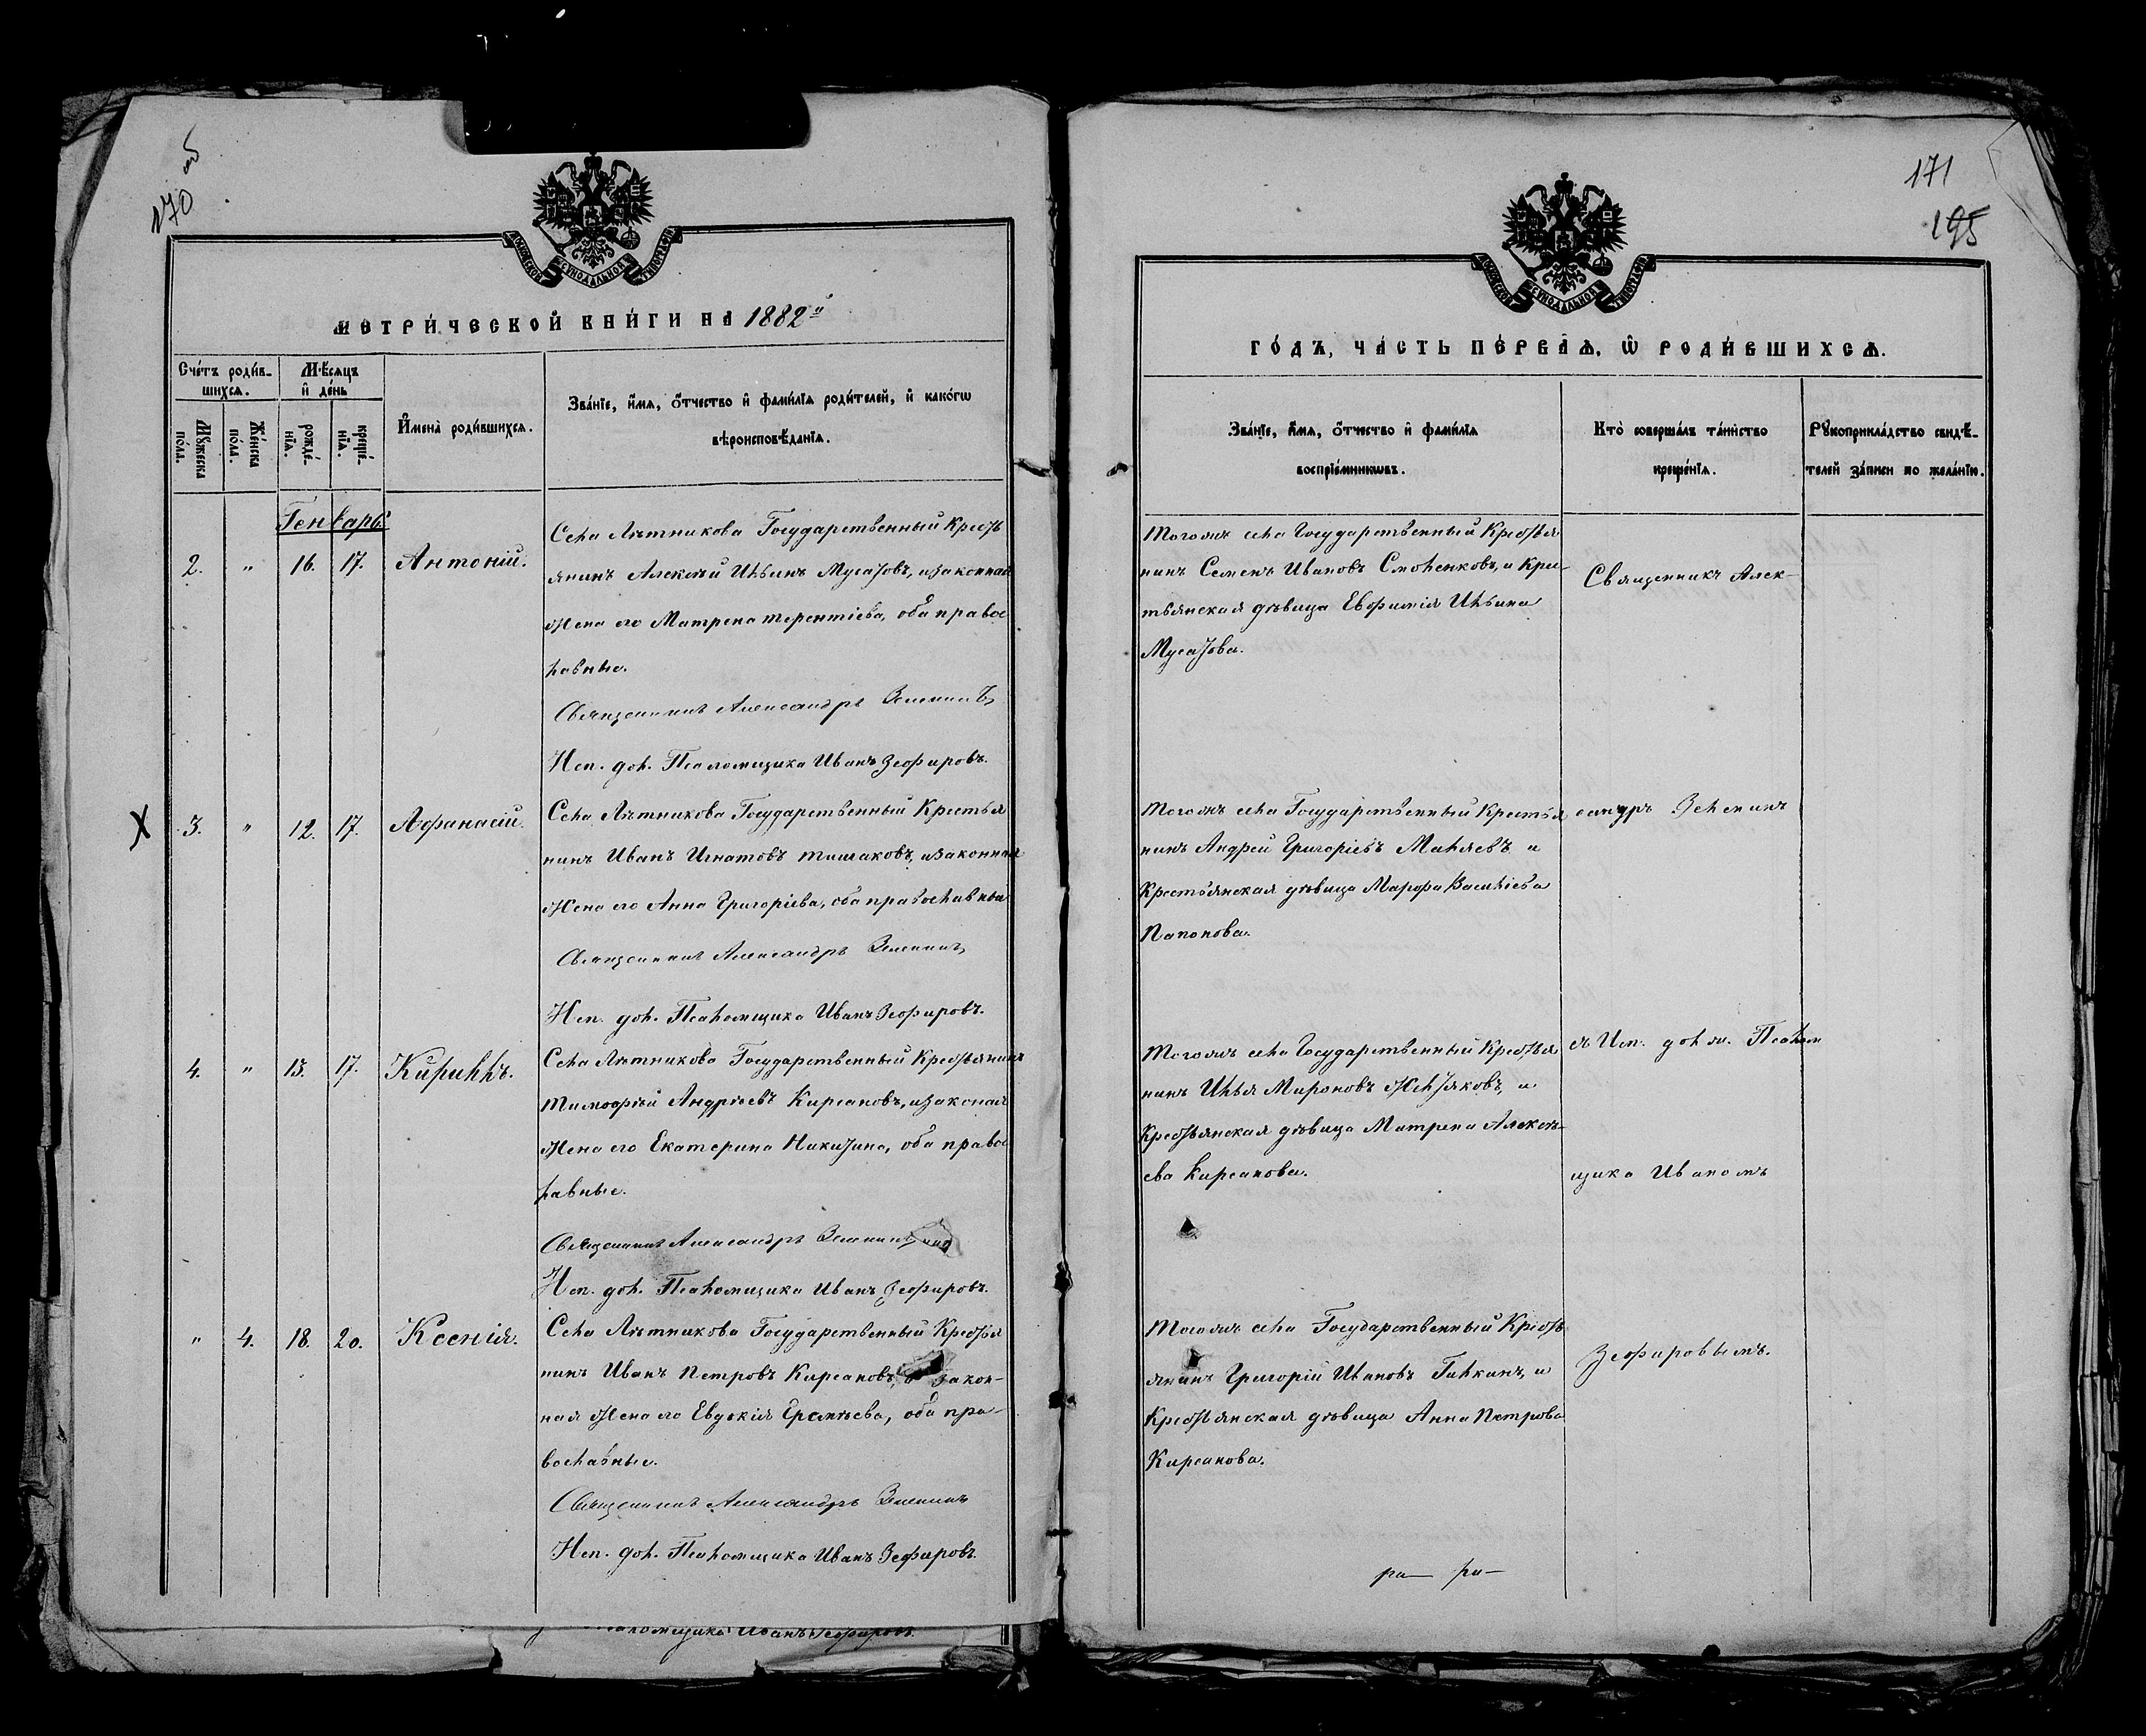 170 об
МОСКОВСКОЙ СУНОДАЛЬНОЙ ТИПОГРАФІИ
МЕТРИ́ЧЕСКОЙ КНИ́ГИ НА 1882й
Сче́тъ роди́в-
шихся.
Мѣ́сяцъ
и҆ де́нь
Мꙋ́жеска
по́ла.
Же́нска
по́ла.
рожде́-
нїя.
креще́-
нїя.
И҆мена̀ роди́вшихся.
Зва́нїе, и҆́мя, ѻ҆́тчество и҆ фами́лїя роди́телей, и҆ како́гѡ
вѣроисповѣ́данїя.
Генварь
2. " 16. 17. Антоній.
Села Лѣтникова Государственный Кресть
янинъ Алексѣй Ильинъ Мусатовъ, и законная
жена его Матрена Терентіева, оба правос
лавные.
Священникъ Александръ Зеленинъ
Исп. дол. Псаломщика Иванъ Зефировъ.
X 3. " 12. 17. Афанасій.
Села Лѣтникова Государственный Крестья
нинъ Иванъ Игнатовъ Тишаковъ, и законная
жена его Анна Григоріева, оба православные
Священникъ Александръ Зеленинъ
Исп. дол. Псаломщика Иванъ Зефировъ.
4. " 13. 17. Кириллъ.
Села Лѣтникова Государственный Крестьянинъ
Тимофѣй Андрѣевъ Кирсановъ, и законая
жена его Екатерина Никитина, оба правос
лавные.
Священникъ Александръ Зеленинъ
Исп. дол. Псаломщика Иванъ Зефировъ.
" 4. 18. 20. Ксенія.
Села Лѣтникова Государственный Крестья
нинъ Иванъ Петровъ Кирсановъ, и закон-
ная жена его Евдокія Еремѣева, оба пра-
вославные.
Священникъ Александръ Зеленинъ
Исп. дол. Псаломщика Иванъ Зефировъ.
Псаломщика Иванъ Зефировъ.
171
195
МОСКОВСКОЙ СУНОДАЛЬНОЙ ТИПОГРАФІИ
ГО́ДЪ, ЧА́СТЬ ПЕ́РВАЯ, Ѡ҆ РОДИ́ВШИХСЯ.
Зва́нїе, и҆́мя, ѻ҆́тчество и҆ фами́лїя
воспрїе́мникѡвъ.
Кто̀ соверша́лъ та́инство
креще́нїя.
Рꙋкоприкла́дство свидѣ́-
телей за́писи по жела́нїю.
Тогожъ села Государственный Крестья
нинъ Семенъ Ивановъ Смоленковъ, и Крес-
тьянская дѣвица Евфимія Ильина
Мусатова.
Священникъ Алек-
Тогожъ села Государственный Крестья
нинъ Андрей Григоріевъ Маляевъ и
Крестьянская дѣвица Марфа Василіева
Папонова.
сандръ Зеленинъ
Тогожъ села Государственный Крестья
нинъ Илья Мироновъ Желтяковъ, и
Крестьянская дѣвица Матрена Алексѣ-
ева Кирсанова.
съ Исп. дол. Псалом
щика Иваномъ
Тогожъ села Государственный Кресть
янинъ Григорій Ивановъ Гилкинъ, и
Крестьянская дѣвица Анна Петрова
Кирсанова.
Зефировымъ.